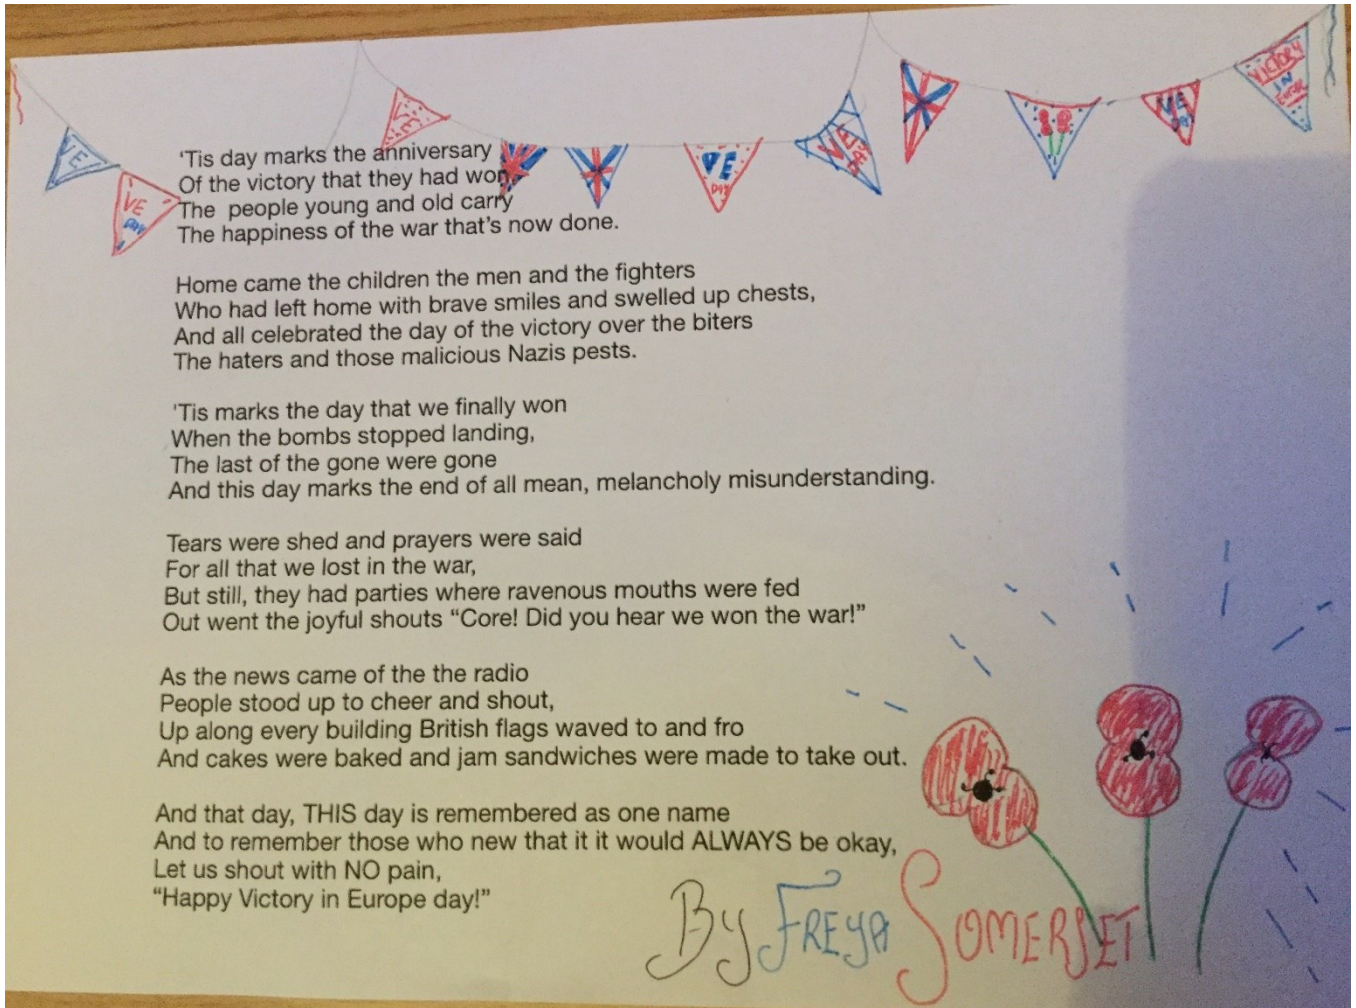 VE
VE
DAY
VE
VE
DAY
VE DAY
VE
DAY
VICTORY
IN
Europe
'Tis day marks the anniversary
Of the victory that they had won
The people young and old carry
The happiness of the war that's now done.
Home came the children the men and the fighters
Who had left home with brave smiles and swelled up chests,
And all celebrated the day of the victory over the biters
The haters and those malicious Nazis pests.
'Tis marks the day that we finally won
When the bombs stopped landing,
The last of the gone were gone
And this day marks the end of all mean, melancholy misunderstanding.
Tears were shed and prayers were said
For all that we lost in the war,
But still, they had parties where ravenous mouths were fed
Out went the joyful shouts “Core! Did you hear we won the war!”
As the news came of the the radio
People stood up to cheer and shout,
Up along every building British flags waved to and fro
And cakes were baked and jam sandwiches were made to take out.
And that day, THIS day is remembered as one name
And to remember those who new that it it would ALWAYS be okay,
Let us shout with NO pain,
“Happy Victory in Europe day!”
By FREYA SOMERSET